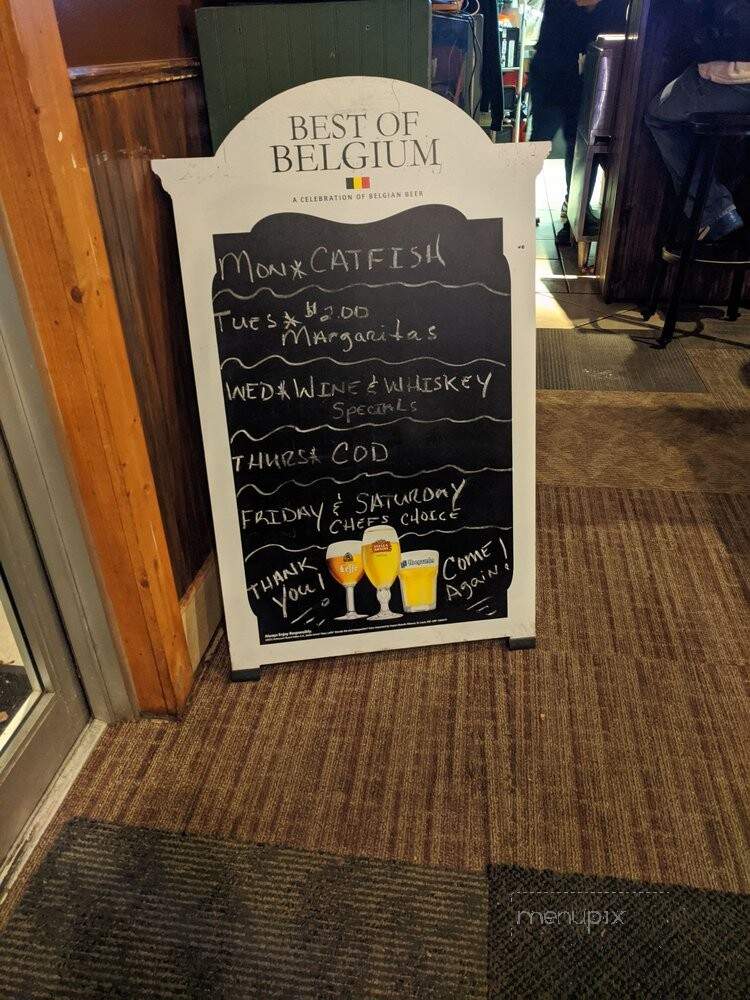 BEST OF
BELGIUM
A CELEBRATION OF BELGIAN BEER
MON* CATFISH
TUES* $2.00
MArgaritas
WED* WINE & WHISKEY
SPECIALS
THURS* COD
FRIDAY & SATURDAY
CHEFS CHOICE
THANK
YOU!
COME
Again!
Leffe
STELLA
ARTOIS
Hoegaarden
Always Enjoy Responsibly.
menupix